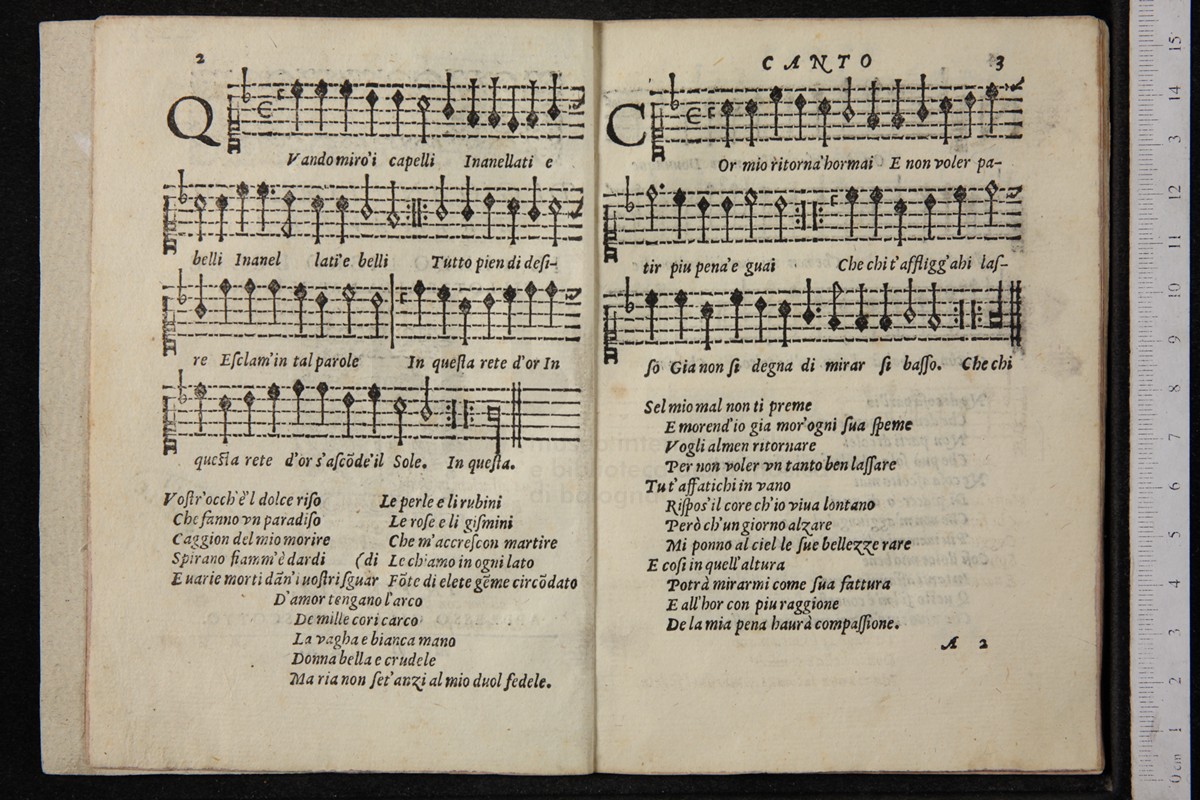 2
Q
Vando miro'i capelli Inanellati e
belli Inanel lati'e belli Tutto pien di desi-
re Esclam'in tal parole In questa rete d'or In
questa rete d'or s'ascõde'il Sole. In questa.
Vostr'occh'è'l dolce riso
Che fanno vn paradiso
Caggion del mio morire
Spirano fiamm'è dardi (di
E uarie morti dãn'i uostri sguar
Le perle e li rubini
Le rose e li gismini
Che m'accrescon martire
Le ch'amo in ogni lato
Fõte di elete gẽme circõdato
D'amor tengano l'arco
De mille cori carco
La vagha e bianca mano
Donna bella e crudele
Ma ria non set'anzi al mio duol fedele.
CANTO 3
C
Or mio ritorna'hormai E non voler pa-
tir piu pena'e guai Che chi t'affligg'ahi las-
so Gia non si degna di mirar si basso. Che chi
Sel mio mal non ti preme
E morend'io gia mor'ogni sua speme
Vogli almen ritornare
Per non voler vn tanto ben lassare
Tu t'affatichi in vano
Rispos'il core ch'io viua lontano
Però ch'un giorno alzare
Mi ponno al ciel le sue bellezze rare
E cosi in quell'altura
Potrà mirarmi come sua fattura
E all'hor con piu raggione
De la mia pena haurà compassione.
A 2
museo inter
e biblioteca
di bologna
0 cm 1 2 3 4 5 6 7 8 9 10 11 12 13 14 15